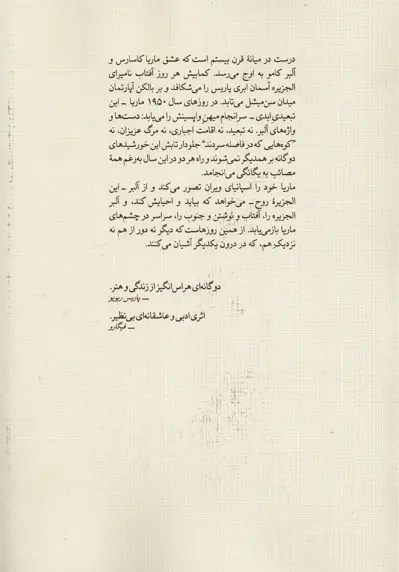 درست در میانهٔ قرن بیستم است که عشق ماریا کاسارس و
آلبر کامو به اوج می‌رسد. کمابیش هر روز آفتاب نامیرای
الجزیره آسمان ابری پاریس را می‌شکافد و بر بالکن آپارتمان
میدان سن‌میشل می‌تابد. در روزهای سال ۱۹۵۰ ماریا ــ این
تبعیدی ابدی ــ سرانجام میهن واپسینش را می‌یابد: دست‌ها و
واژه‌های آلبر. نه تبعید، نه اقامت اجباری، نه مرگ عزیزان، نه
"کوه‌هایی که در فاصله سردند" جلودار تابش این خورشیدهای
دوگانه بر همدیگر نمی‌شوند و راه هر دو در این سال به‌رغم همهٔ
مصائب به یگانگی می‌انجامد.
ماریا خود را اسپانیای ویران تصور می‌کند و از آلبر ــ این
الجزیرهٔ روح ــ می‌خواهد که بیاید و احیایش کند، و آلبر
الجزیره را، آفتاب و نوشتن و جنوب را، سراسر در چشم‌های
ماریا بازمی‌یابد. از همین روزهاست که دیگر نه دور از هم نه
نزدیکِ هم، که در درون یکدیگر آشیان می‌کنند.
دوگانه‌ای هراس‌انگیز از زندگی و هنر.
ــ پاریس ریویو
اثری ادبی و عاشقانه‌ای بی‌نظیر.
ــ فیگارو